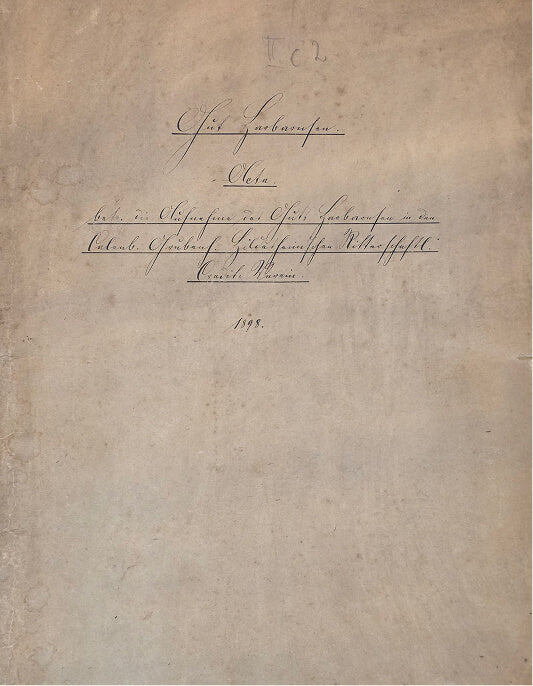 II C 2
Gut Harbarnsen.
Acta
betr. die Aufnahme des Guts Harbarnsen in den
Calenb. Grubenh. Hildesheimischen Ritterschaftl.
Credit Verein.
1898.